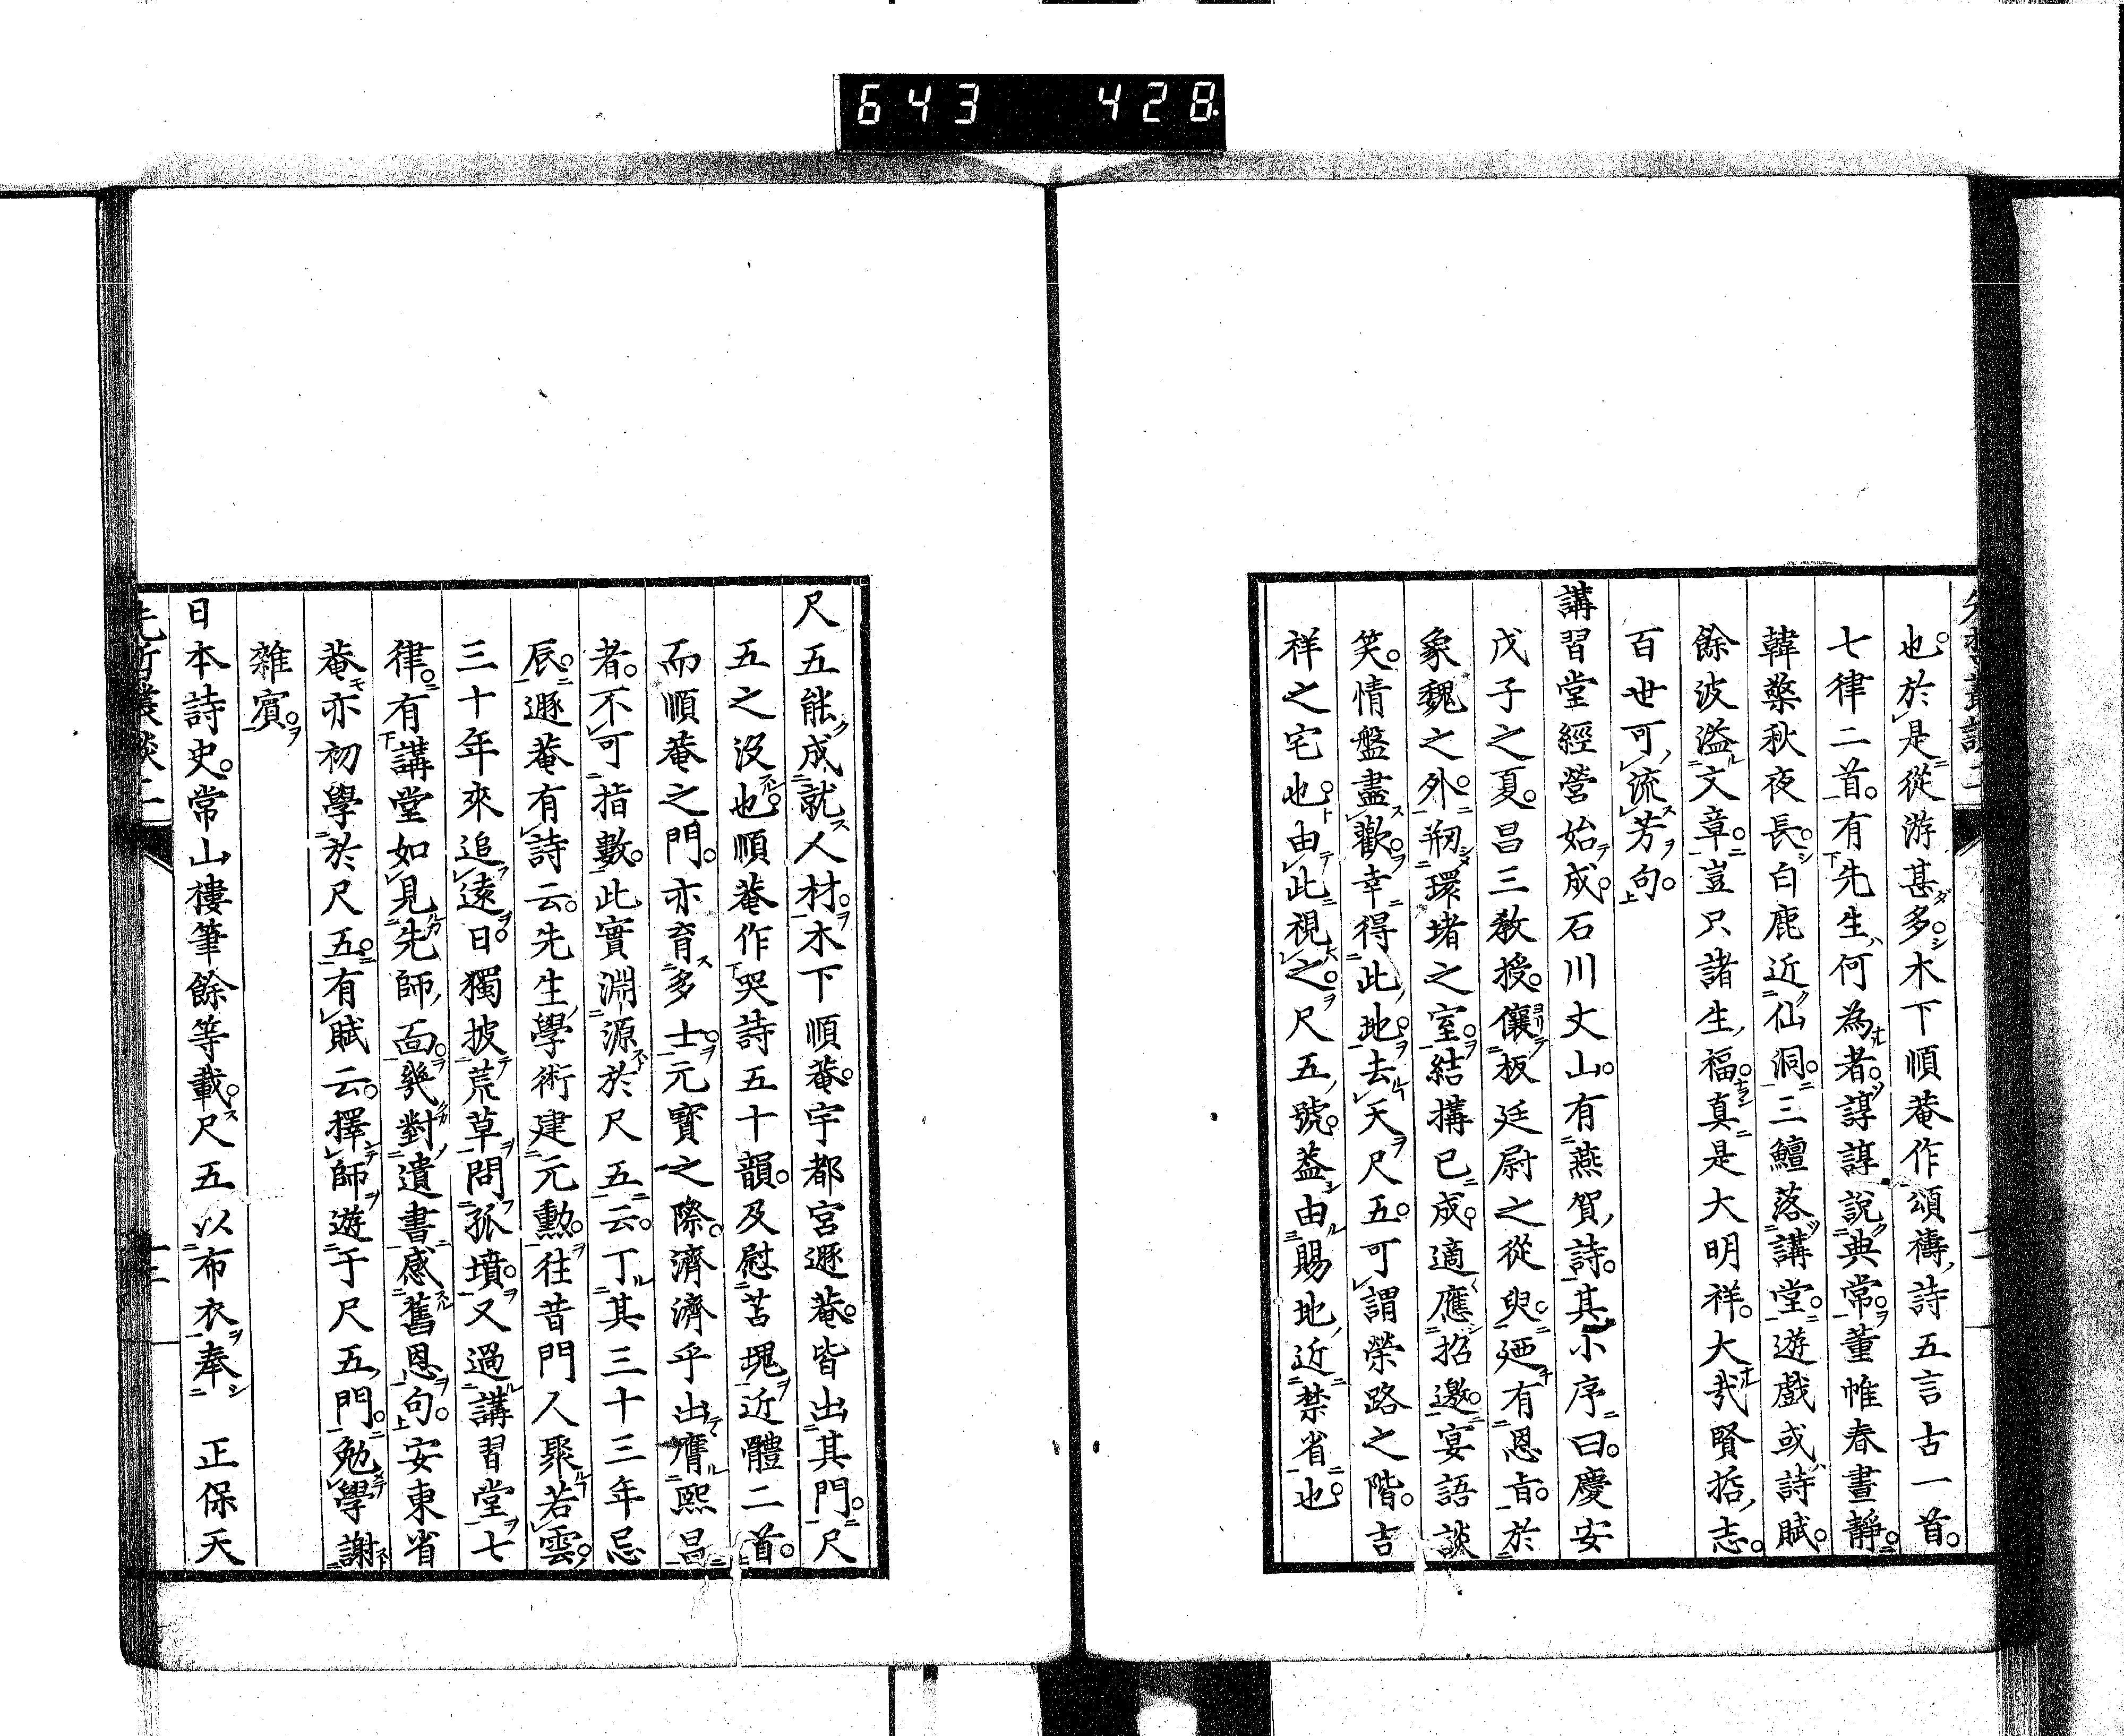 643 428
也。於是從游甚多。木下順菴作頌禱詩五言古一首。
七律二首。有先生何為者。諄諄說典常。董帷春晝靜。
韓檠秋夜長。白鹿近仙洞。三鱣落講堂。遊戲或詩賦。
餘波溢文章。豈只諸生福。真是大明祥。大哉賢哲志。
百世可流芳句。
講習堂經營始成。石川丈山。有燕賀詩。其小序曰。慶安
戊子之夏。昌三教授。儴板廷尉之從臾。廼有恩旨。於
象魏之外。剏環堵之室。結搆已成。適應招邀。宴語談
笑。情盤盡歡。幸得此地。去天尺五。可謂榮路之階。吉
祥之宅也。由此視之。尺五號。蓋由賜地近禁省也。
尺五能成就人材。木下順菴。宇都宮遯菴。皆出其門。尺
五之沒也。順菴作哭詩五十韻。及慰苫塊近體二首。
而順菴之門。亦育多士。元寶之際。濟濟乎出膺熙昌
者。不可指數。此實淵源於尺五云。丁其三十三年忌
辰。遯菴有詩云。先生學術建元勳。往昔門人聚若雲。
三十年來追遠日。獨披荒草問孤墳。又過講習堂七
律。有講堂如見先師面。幾對遺書感舊恩句。安東省
菴亦初學於尺五。有賦云。擇師遊于尺五門。勉學謝
雜賓。
日本詩史。常山樓筆餘等載。尺五以布衣奉 正保天
先哲叢談二